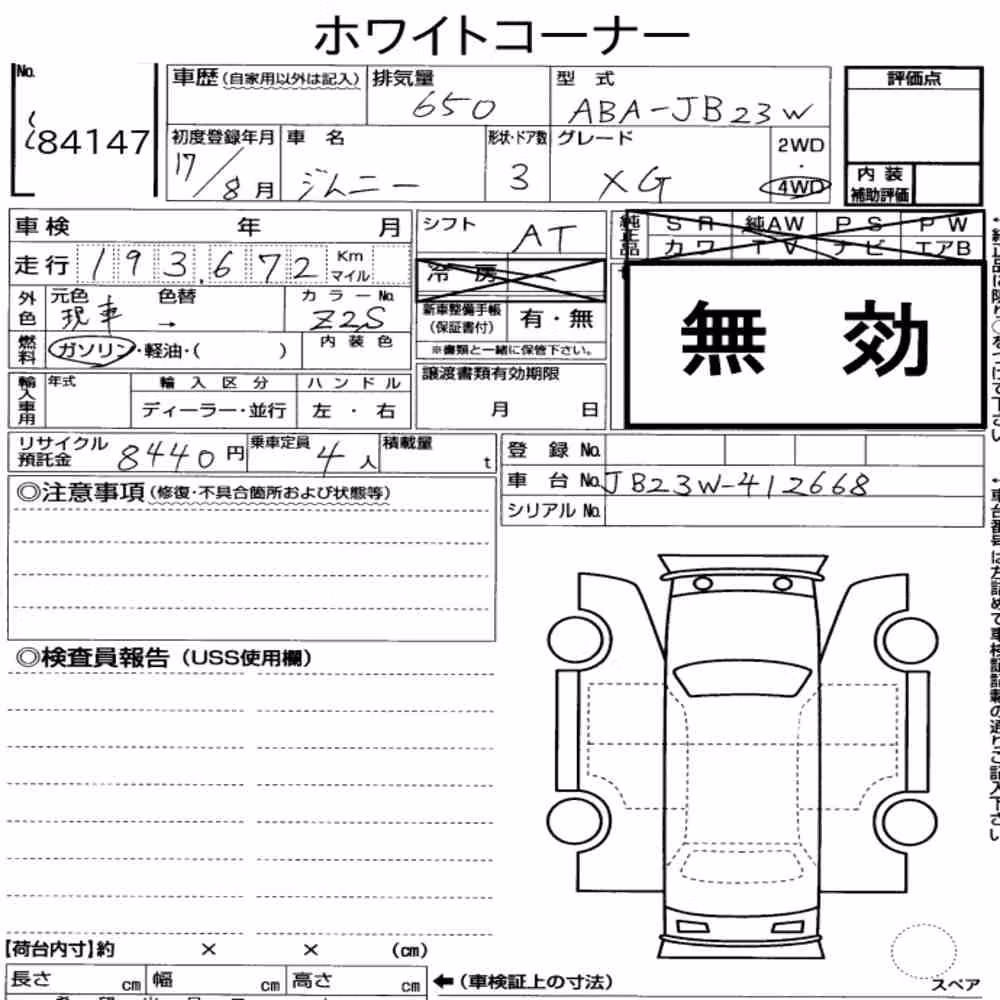 ホワイトコーナー
No.
84147
車歴(自家用以外は記入) 排気量 型式
650 ABA-JB23W
初度登録年月 車名 形状・ドア数 グレード 2WD
・
17/8月 ジムニー 3 XG 4WD
評価点
内装
補助評価
車検 年 月
走行 193,672 Km
マイル
外色 元色 色替 カラーNo.
現車 → Z2S
燃料 ガソリン・軽油・( ) 内装色
輸入車用 年式 輸入区分 ハンドル
ディーラー・並行 左・右
シフト
AT
冷房
新車整備手帳
(保証書付) 有・無
※書類と一緒に保管下さい。
譲渡書類有効期限
月 日
純正品 SR 純AW PS PW
カワ TV ナビ エアB
無効
リサイクル
預託金 8440円 乗車定員 4人 積載量 t
登録No.
車台No. JB23W-412668
シリアルNo.
◎注意事項(修復・不具合箇所および状態等)
◎検査員報告(USS使用欄)
【荷台内寸】約 × × (cm)
長さ cm 幅 cm 高さ cm ←(車検証上の寸法)
スペア